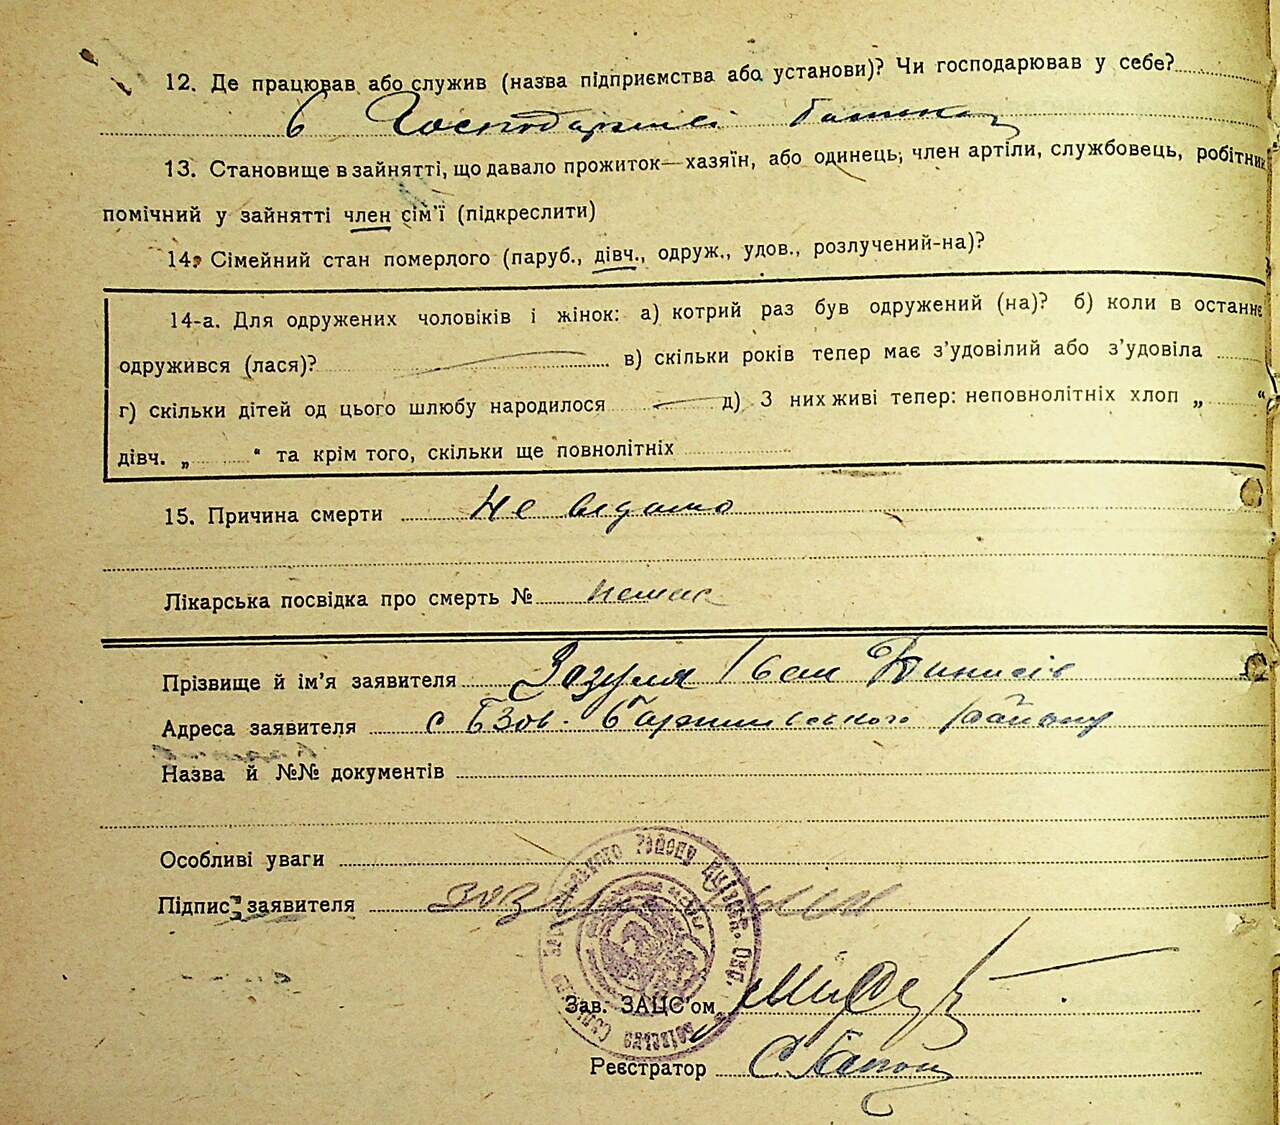 12. Де працював або служив (назва підприємства або установи)? Чи господарював у себе?
в Господарстві батька
13. Становище в зайнятті, що давало прожиток—хазяїн, або одинець, член артіли, службовець, робітник
помічний у зайнятті член сім'ї (підкреслити)
14. Сімейний стан померлого (паруб., дівч., одруж., удов., розлучений-на)?
14-а. Для одружених чоловіків і жінок: а) котрий раз був одружений (на)? б) коли в останнє
одружився (лася)? в) скільки років тепер має з'удовілий або з'удовіла
г) скільки дітей од цього шлюбу народилося д) З них живі тепер: неповнолітніх хлоп „ “
дівч. „ “ та крім того, скільки ще повнолітніх
15. Причина смерти Не відомо
Лікарська посвідка про смерть № немає
Прізвище й ім'я заявителя Зазуля Іван Денисів
Адреса заявителя с Бзов. Баришівського району
Назва й №№ документів
Особливі уваги
Підпис заявителя
Зав. ЗАЦС'ом
Реєстратор